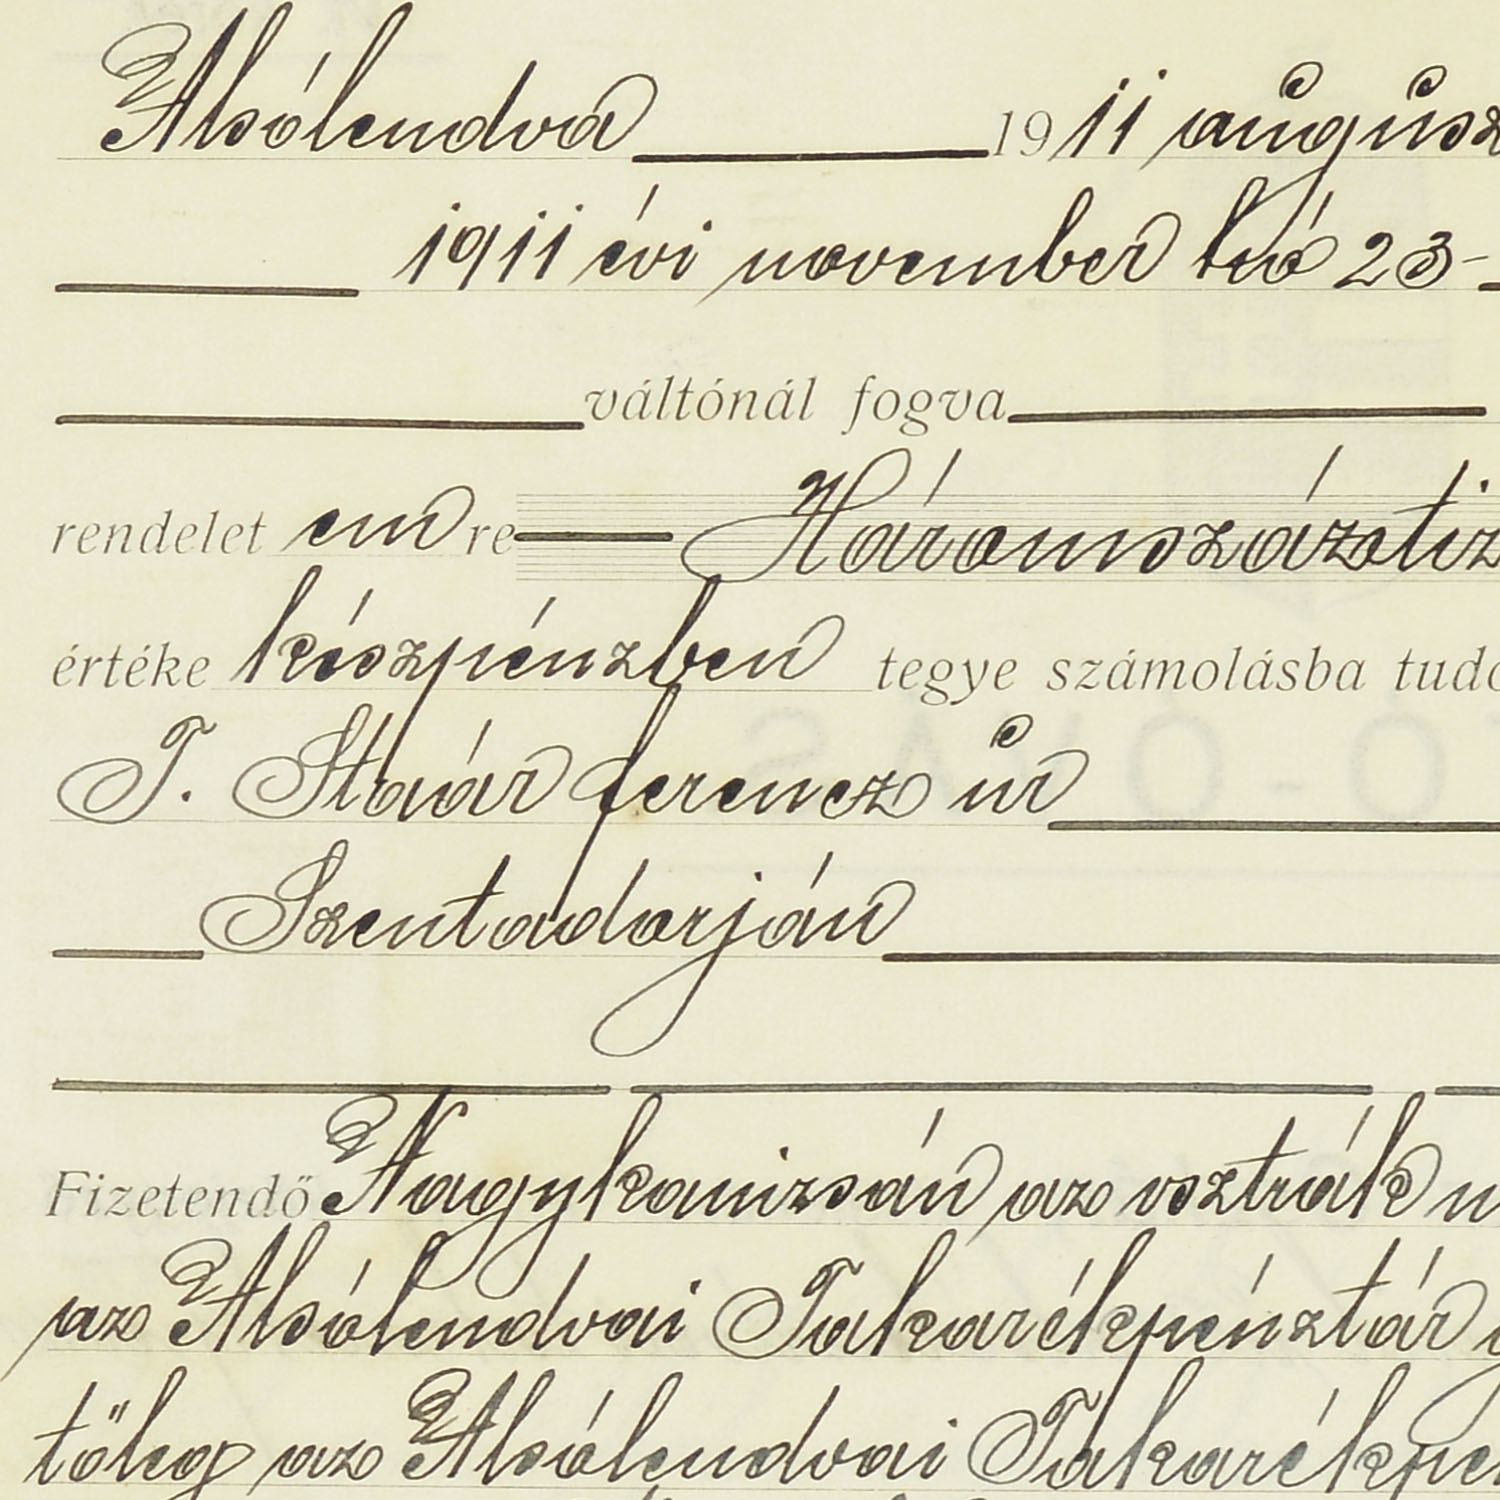 Alsólendva 1911 augusz
1911 évi november hó 23-
váltónál fogva
rendelet em re Háromszázötiz
értéke készpénzben tegye számolásba tudo
T. Staár ferencz úr
Szentadorján
Fizetendő Nagykanizsán az osztrák m
az Alsólendvai Takarékpénztár
tőleg az Alsólendvai Takarékpé